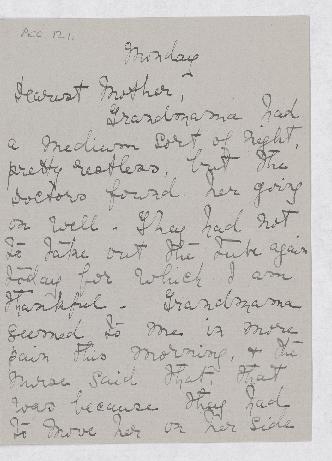 Acc. 121.
Monday
Dearest Mother,
Grandmama had
a medium sort of night,
pretty restless, but the
doctors found her going
on well - They had not
to take out the tube again
today for which I am
thankful - Grandmama
seemed to me in more
pain this morning, & the
nurse said that, that
was because they had
to move her on her side